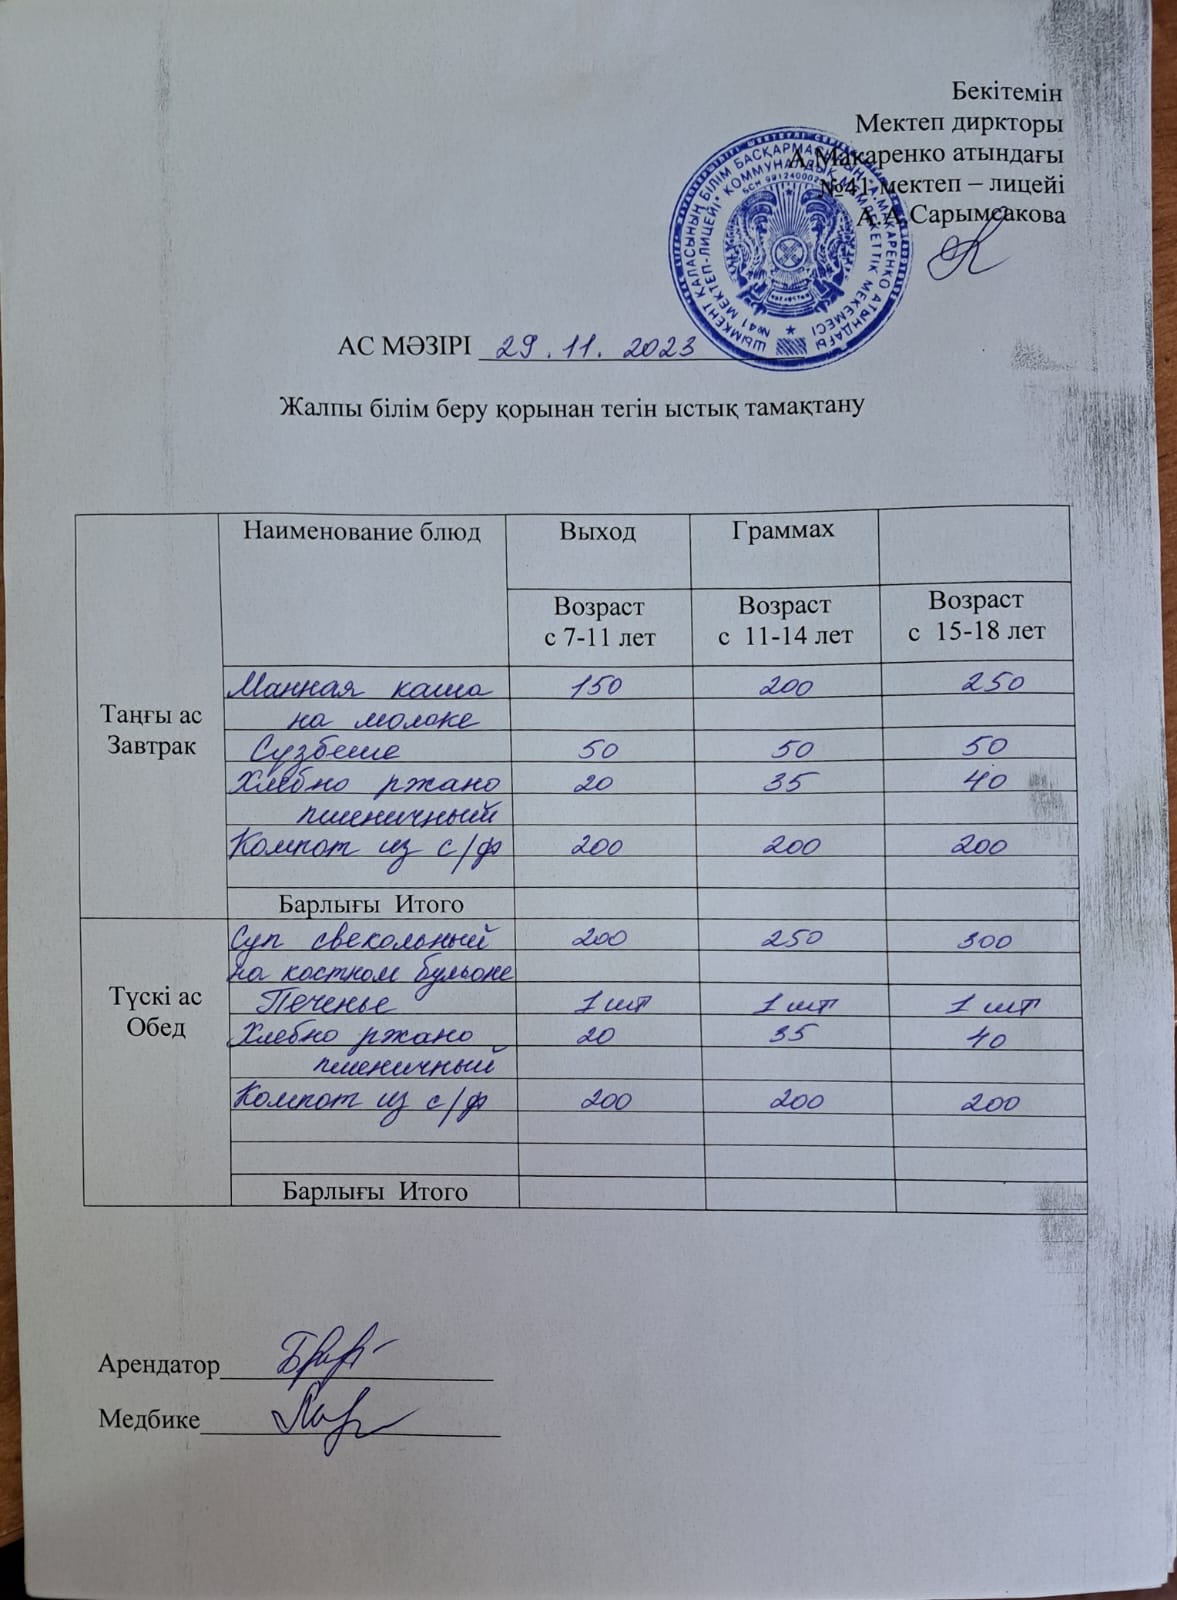 Бекітемін
Мектеп диркторы
А.Макаренко атындағы
№41 мектеп – лицейі
А.А.Сарымсакова
АС МӘЗІРІ 29.11.2023
Жалпы білім беру қорынан тегін ыстық тамақтану
Наименование блюд Выход Граммах
Возраст с 7-11 лет Возраст с 11-14 лет Возраст с 15-18 лет
Таңғы ас
Завтрак
Манная каша 150 200 250
на молоке
Сүзбеше 50 50 50
Хлебно ржано 20 35 40
пшеничный
Компот из с/ф 200 200 200
Барлығы Итого
Түскі ас
Обед
Суп свекольный 200 250 300
на костном бульоне
Печенье 1 шт 1 шт 1 шт
Хлебно ржано 20 35 40
пшеничный
Компот из с/ф 200 200 200
Барлығы Итого
Арендатор
Медбике